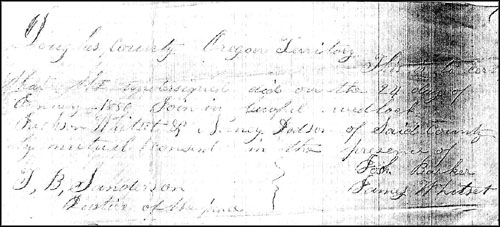 Douglas County Oregon Territory
This
that the undersigned did on the 24 day of
1856 Join in Lawful wedlock
Whitset & Nancy Dodson of Said County
by mutual consent in the presence of
Barker
J, B, Sanderson James Whitset
Justice of the peace